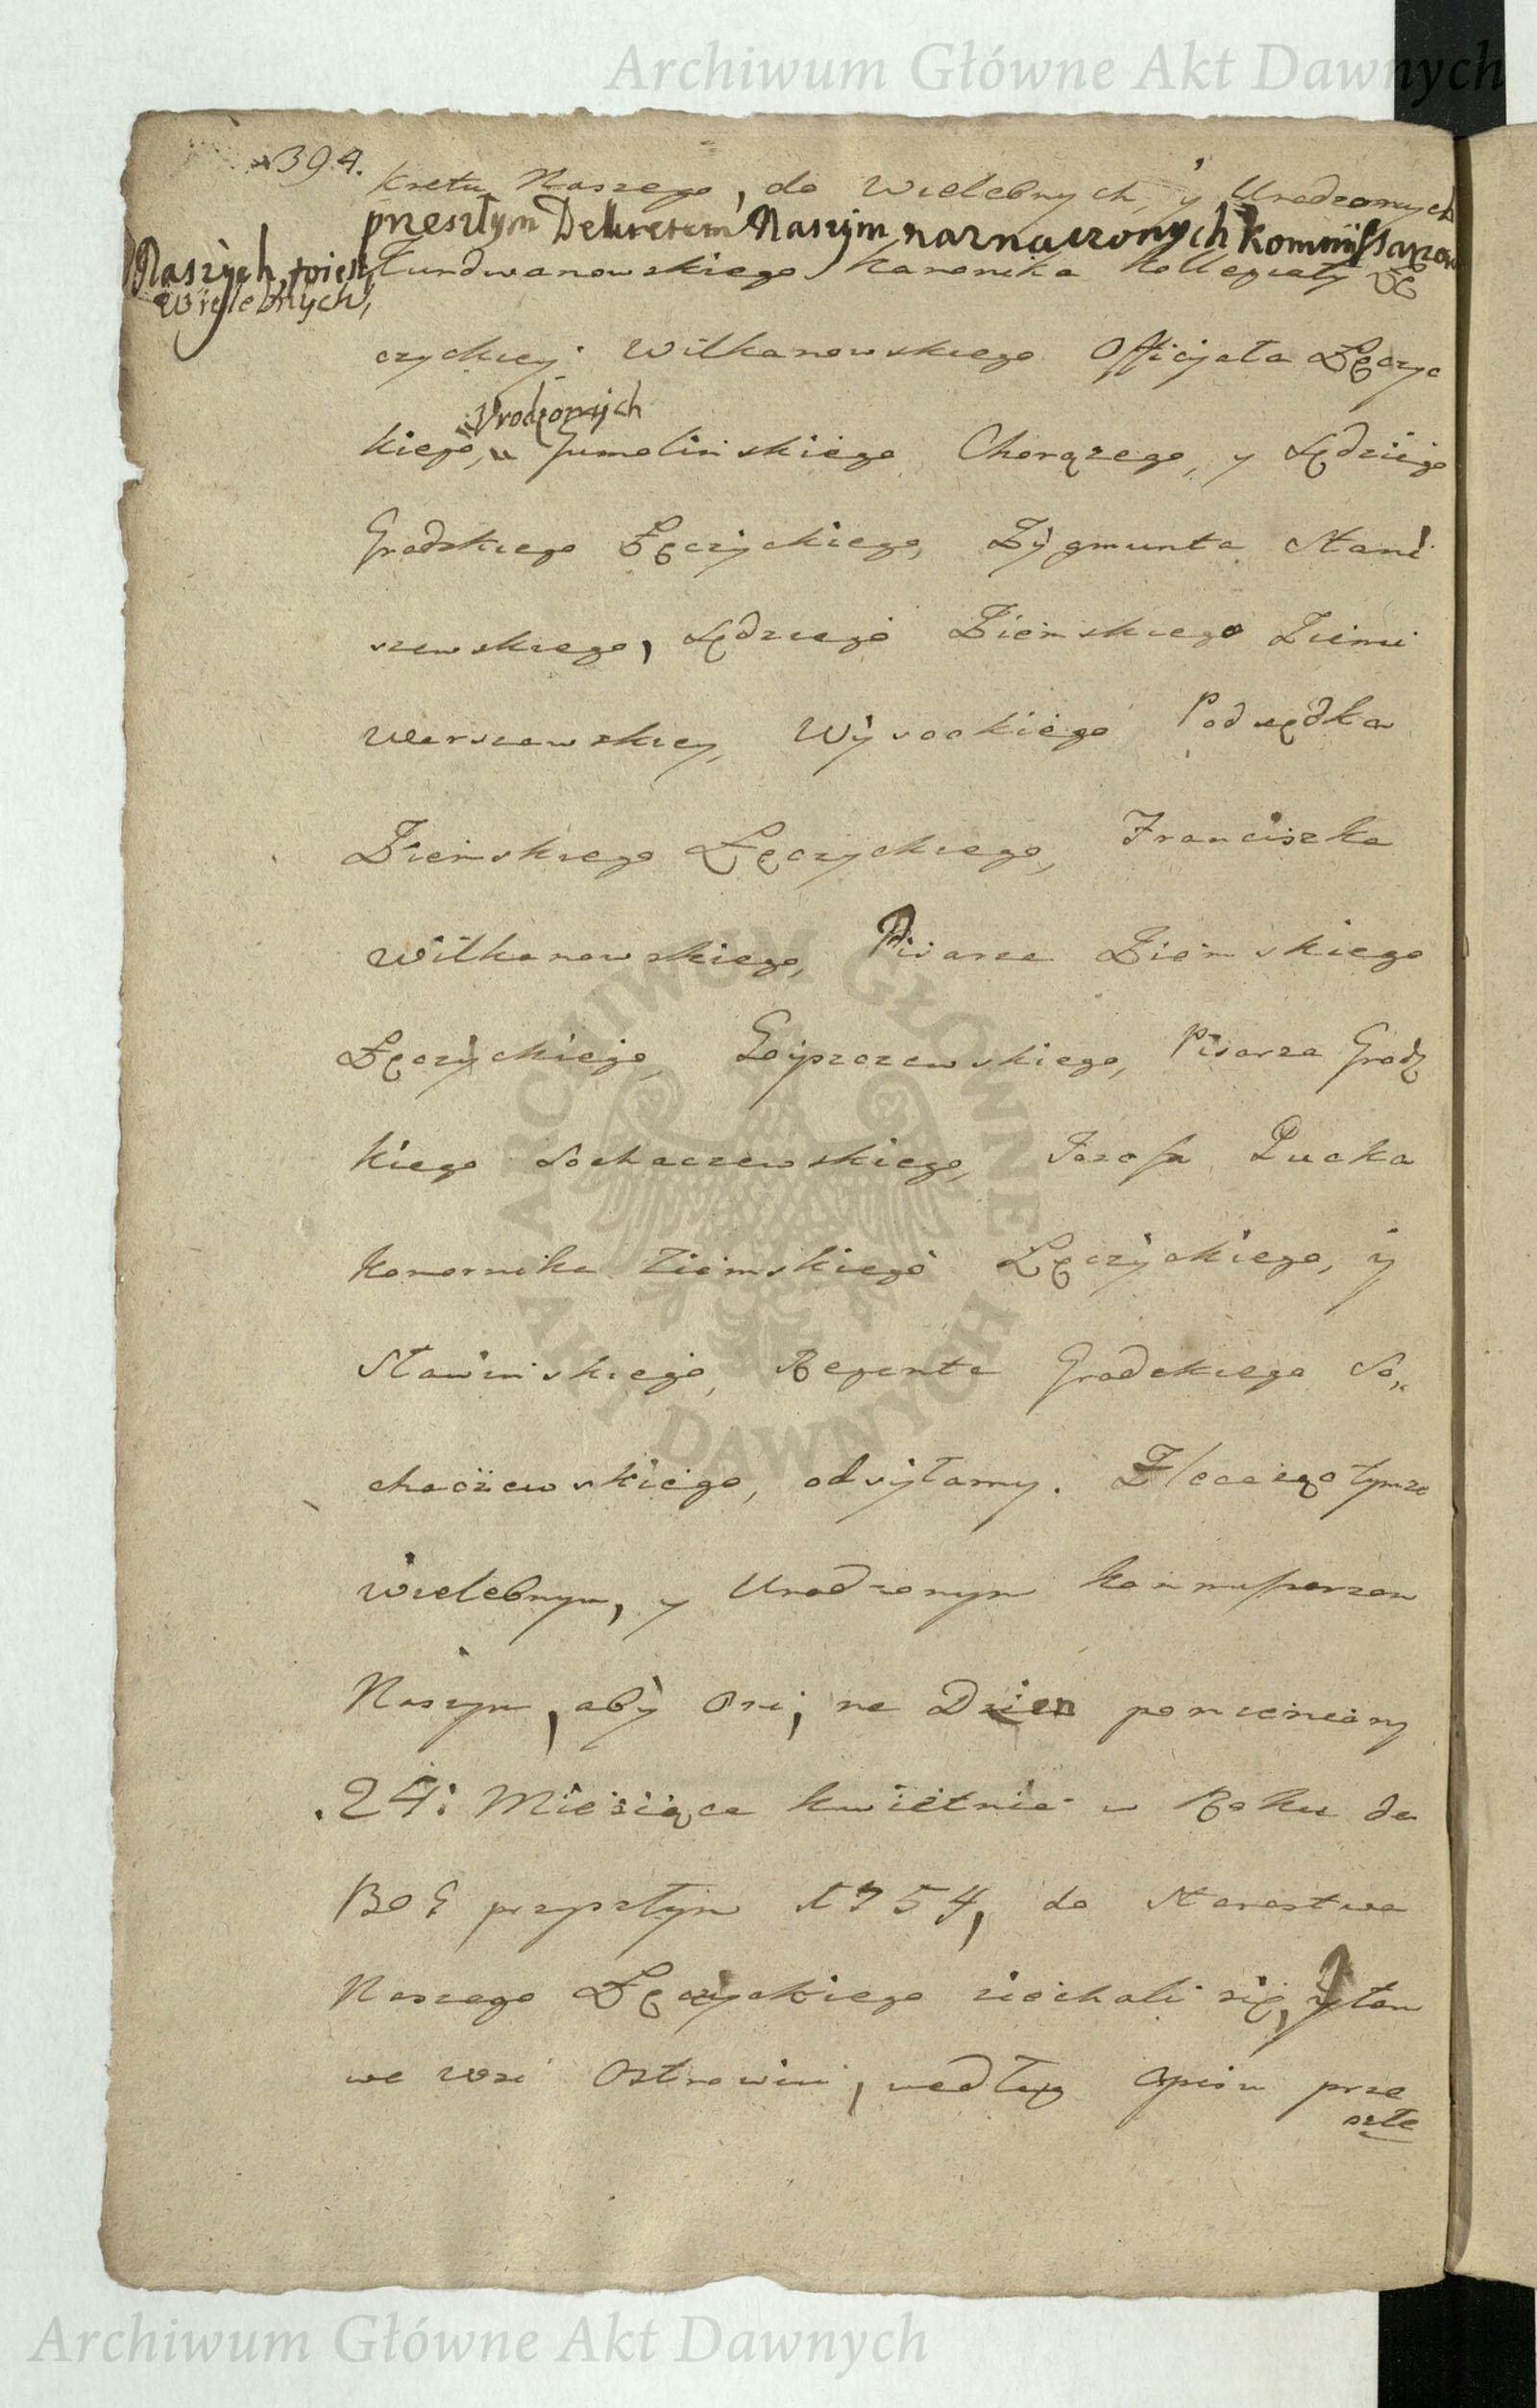 Archiwum Główne Akt Dawnych
394.
kretu Naszego, do Wielebnych, y Urodzonych
przeszłym Dekretem Naszym naznaczonych Kommissarzow
Naszych, toiest
Wielebnych,
Turdwanowskiego Kanonika Kollegiaty Łę
czyckiey Wilkanowskiego Officjała Łęczyc
Urodzonych
kiego, Gumolińskiego Chorązego, y Sędziego
Grodzkiego Łęczyckiego, Zygmunta Stani
szewskiego, Sędziego Ziemskiego Ziemi
Warszawskiey, Wysockiego Podsędka
Ziemskiego Łęczyckiego, Franciszka
Wilkanowskiego, Pisarza Ziemskiego
Łęczyckiego, Pisarza Grodz
kiego Sochaczewskiego, Jozefa Łucka
Komornika Ziemskiego Łęczyckiego, y
Sławinskiego, Regenta Grodzkiego So,,
chaczewskiego, odsyłamy. Zlecaiąc tymze
Wielebnym, y Urodzonym Kommissarzom
Naszym, aby Oni, na Dzien pomieniony
24: Miesiąca Kwietnia w Roku da
BOG przyszłym 1754, do Starostwa
Naszego Łęczyckiego ziechali się, y tam
we Wsi Ostrowiu, według Opisu prze
szłe
ARCHIWUM GŁÓWNE AKT DAWNYCH
Archiwum Główne Akt Dawnych